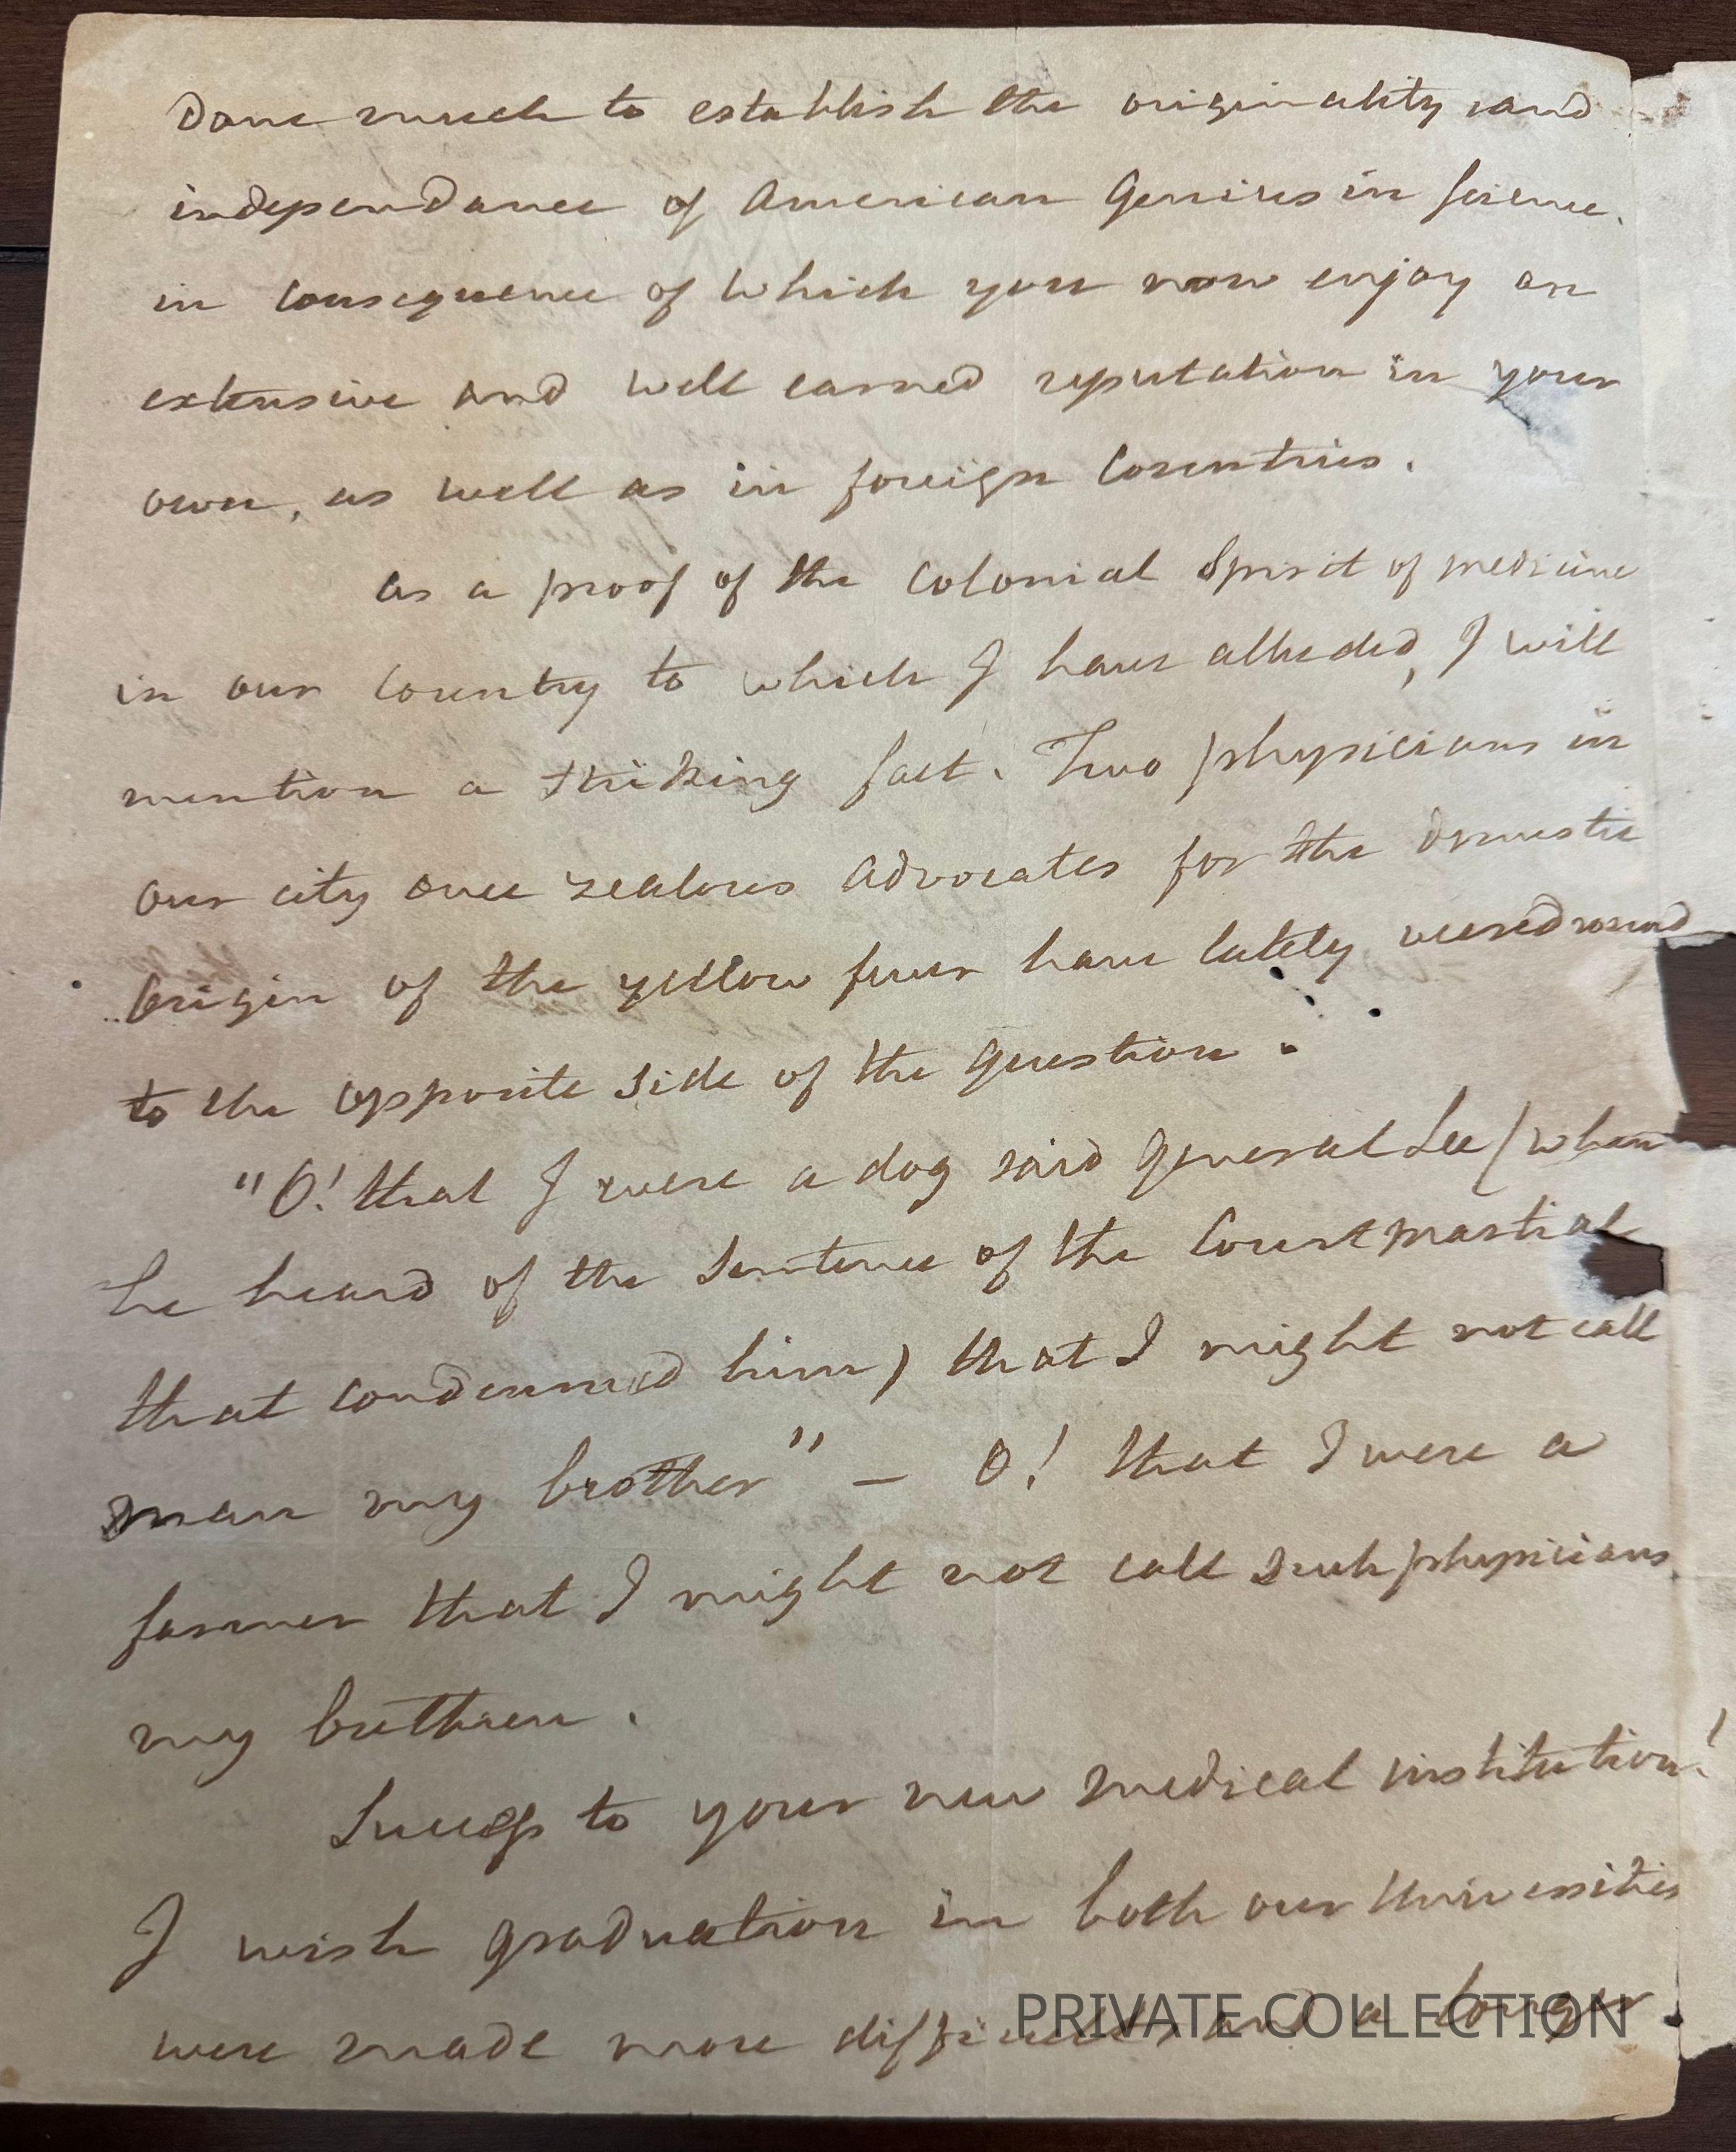 done much to establish the originality and
independance of American Genius in science.
in consequence of which you now enjoy an
extensive and well earned reputation in your
own, as well as in foreign Countries.
as a proof of the Colonial Spirit of medicine
in our Country to which I have alluded, I will
mention a striking fact. Two physicians in
our city once zealous advocates for the domestic
Origin of the yellow fever have lately veered round
to the opposite side of the Question.
"O! that I were a dog said General Lee (when
he heard of the sentence of the Court martial
that condemned him) that I might not call
man my brother" — O! that I were a
farmer that I might not call such physicians
my brethren.
Success to your new medical institution!
I wish graduation in both our Universities
were made more difficult, and a longer
PRIVATE COLLECTION